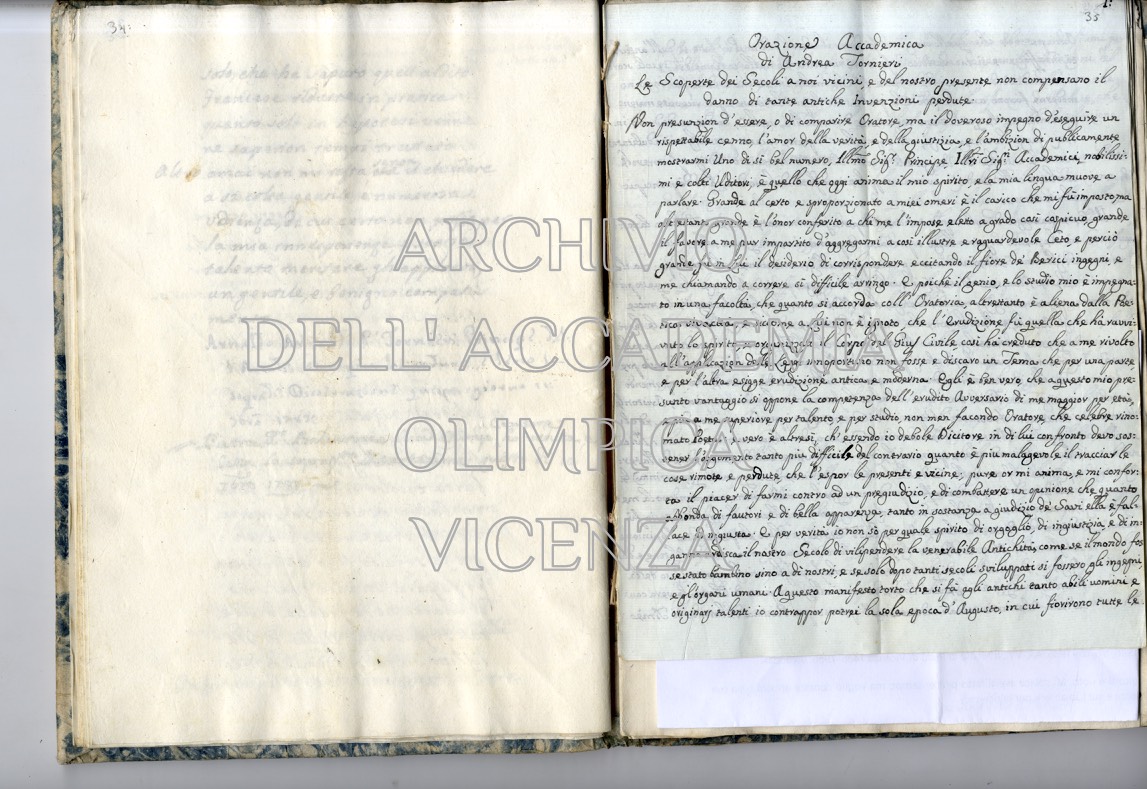 34:
35
1:
Orazione Accademica
di Andrea Tornieri
Le Scoperte dei Secoli a noi vicini e del nostro presente non compensano il
danno di tante antiche Invenzioni perdute.
Non presunzion d'essere, o di comparire Oratore, ma il doveroso impegno d'eseguire un
rispettabile cenno, l'amor della verità, e della giustizia, e l'ambizion di publicamente
mostrarmi Uno di sì bel numero, Illmo Sigr. Principe Illri Sigri Accademici, nobilissi-
mi e colti Uditori, è quello che oggi anima il mio spirito, e la mia lingua muove a
parlare. Grande al certo e sproporzionato a miei omeri è il carico che mi fù imposto, ma
altrettanto grande è l'onor conferito a chi me l'impose eletto a grado così cospicuo, grande
il favore a me pur impartito d'aggregarmi a così illustre e raguardevole Ceto, e perciò
grande fu in lui il desiderio di corrispondere eccitando il fiore de' Berici ingegni, e
me chiamando a correre sì difficile arringo. E poichè il genio, e lo studio mio è impegna-
to in una facoltà, che quanto si accorda coll'Oratoria, altrettanto è aliena dalla Poe-
tica vivacità, e siccome a Lui non è ignoto, che l'Erudizione fù quella che ha ravvi-
vato lo spirito, e organizzato il Corpo del Gius Civile così ha creduto che a me rivolto
all'applicazion delle Leggi inopportuno non fosse e discaro un Tema che per una parte,
e per l'altra esigge erudizione antica, e moderna. Egli è ben vero, che a questo mio pre-
sunto vantaggio si oppone la competenza dell'erudito Avversario di me maggior per età,
a me superiore per talento, e per studio, non men facondo Oratore, che celebre rino-
mato Poeta: e vero è altresì, ch'essendo io debole Dicitore in di lui confronto devo sos-
tener l'argumento tanto più difficile del contrario quanto è più malagevole il tracciar le
cose rimote e perdute, che l'espor le presenti e vicine; pure or mi anima, e mi confor-
ta il piacer di farmi contro ad un pregiudizio, e di combattere un opinione che quanto
abbonda di fautori e di bella apparenza, tanto in sostanza a giudizio de' Savi ella è fal-
lace ed ingiusta. E per verità io non sò per quale spirito di orgoglio, di ingiustizia, e di in-
ganno ardisca il nostro Secolo di vilipendere la venerabile Antichità, come se il mondo fos-
se stato bambino sino a dì nostri, e se solo dopo tanti secoli sviluppati si fossero gli ingegni
e gl'organi umani. A questo manifesto torto che si fà agli antichi tanto abili uomini, e
originarj talenti io contrappor potrei la sola epoca d'Augusto, in cui fiorirono tutte le
ARCHIVIO
DELL'ACCADEMIA
OLIMPICA
VICENZA